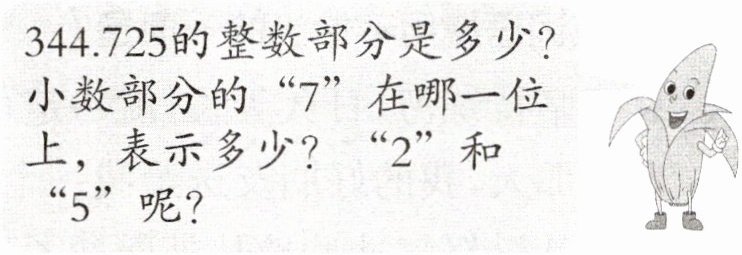 344.725的整数部分是多少?
小数部分的“7”在哪一位
上，表示多少? “2”和
“5”呢?